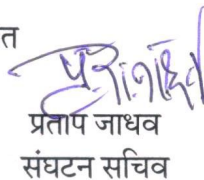 त
प्रताप जाधव
संघटन सचिव